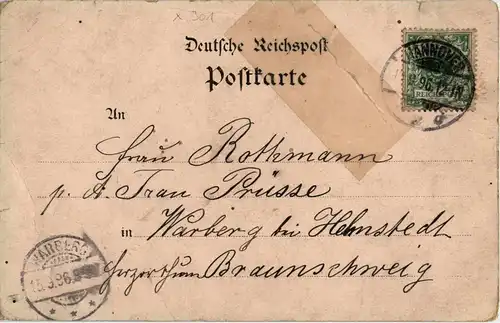 x 301
Deutsche Reichspost
Postkarte
HANNOVER
96.12
REICHSPOST
An
Frau Rothmann
p. A. Frau Prüsse
in Warberg bei Helmstedt
Herzogthum Braunschweig
WARBERG
15.3.96